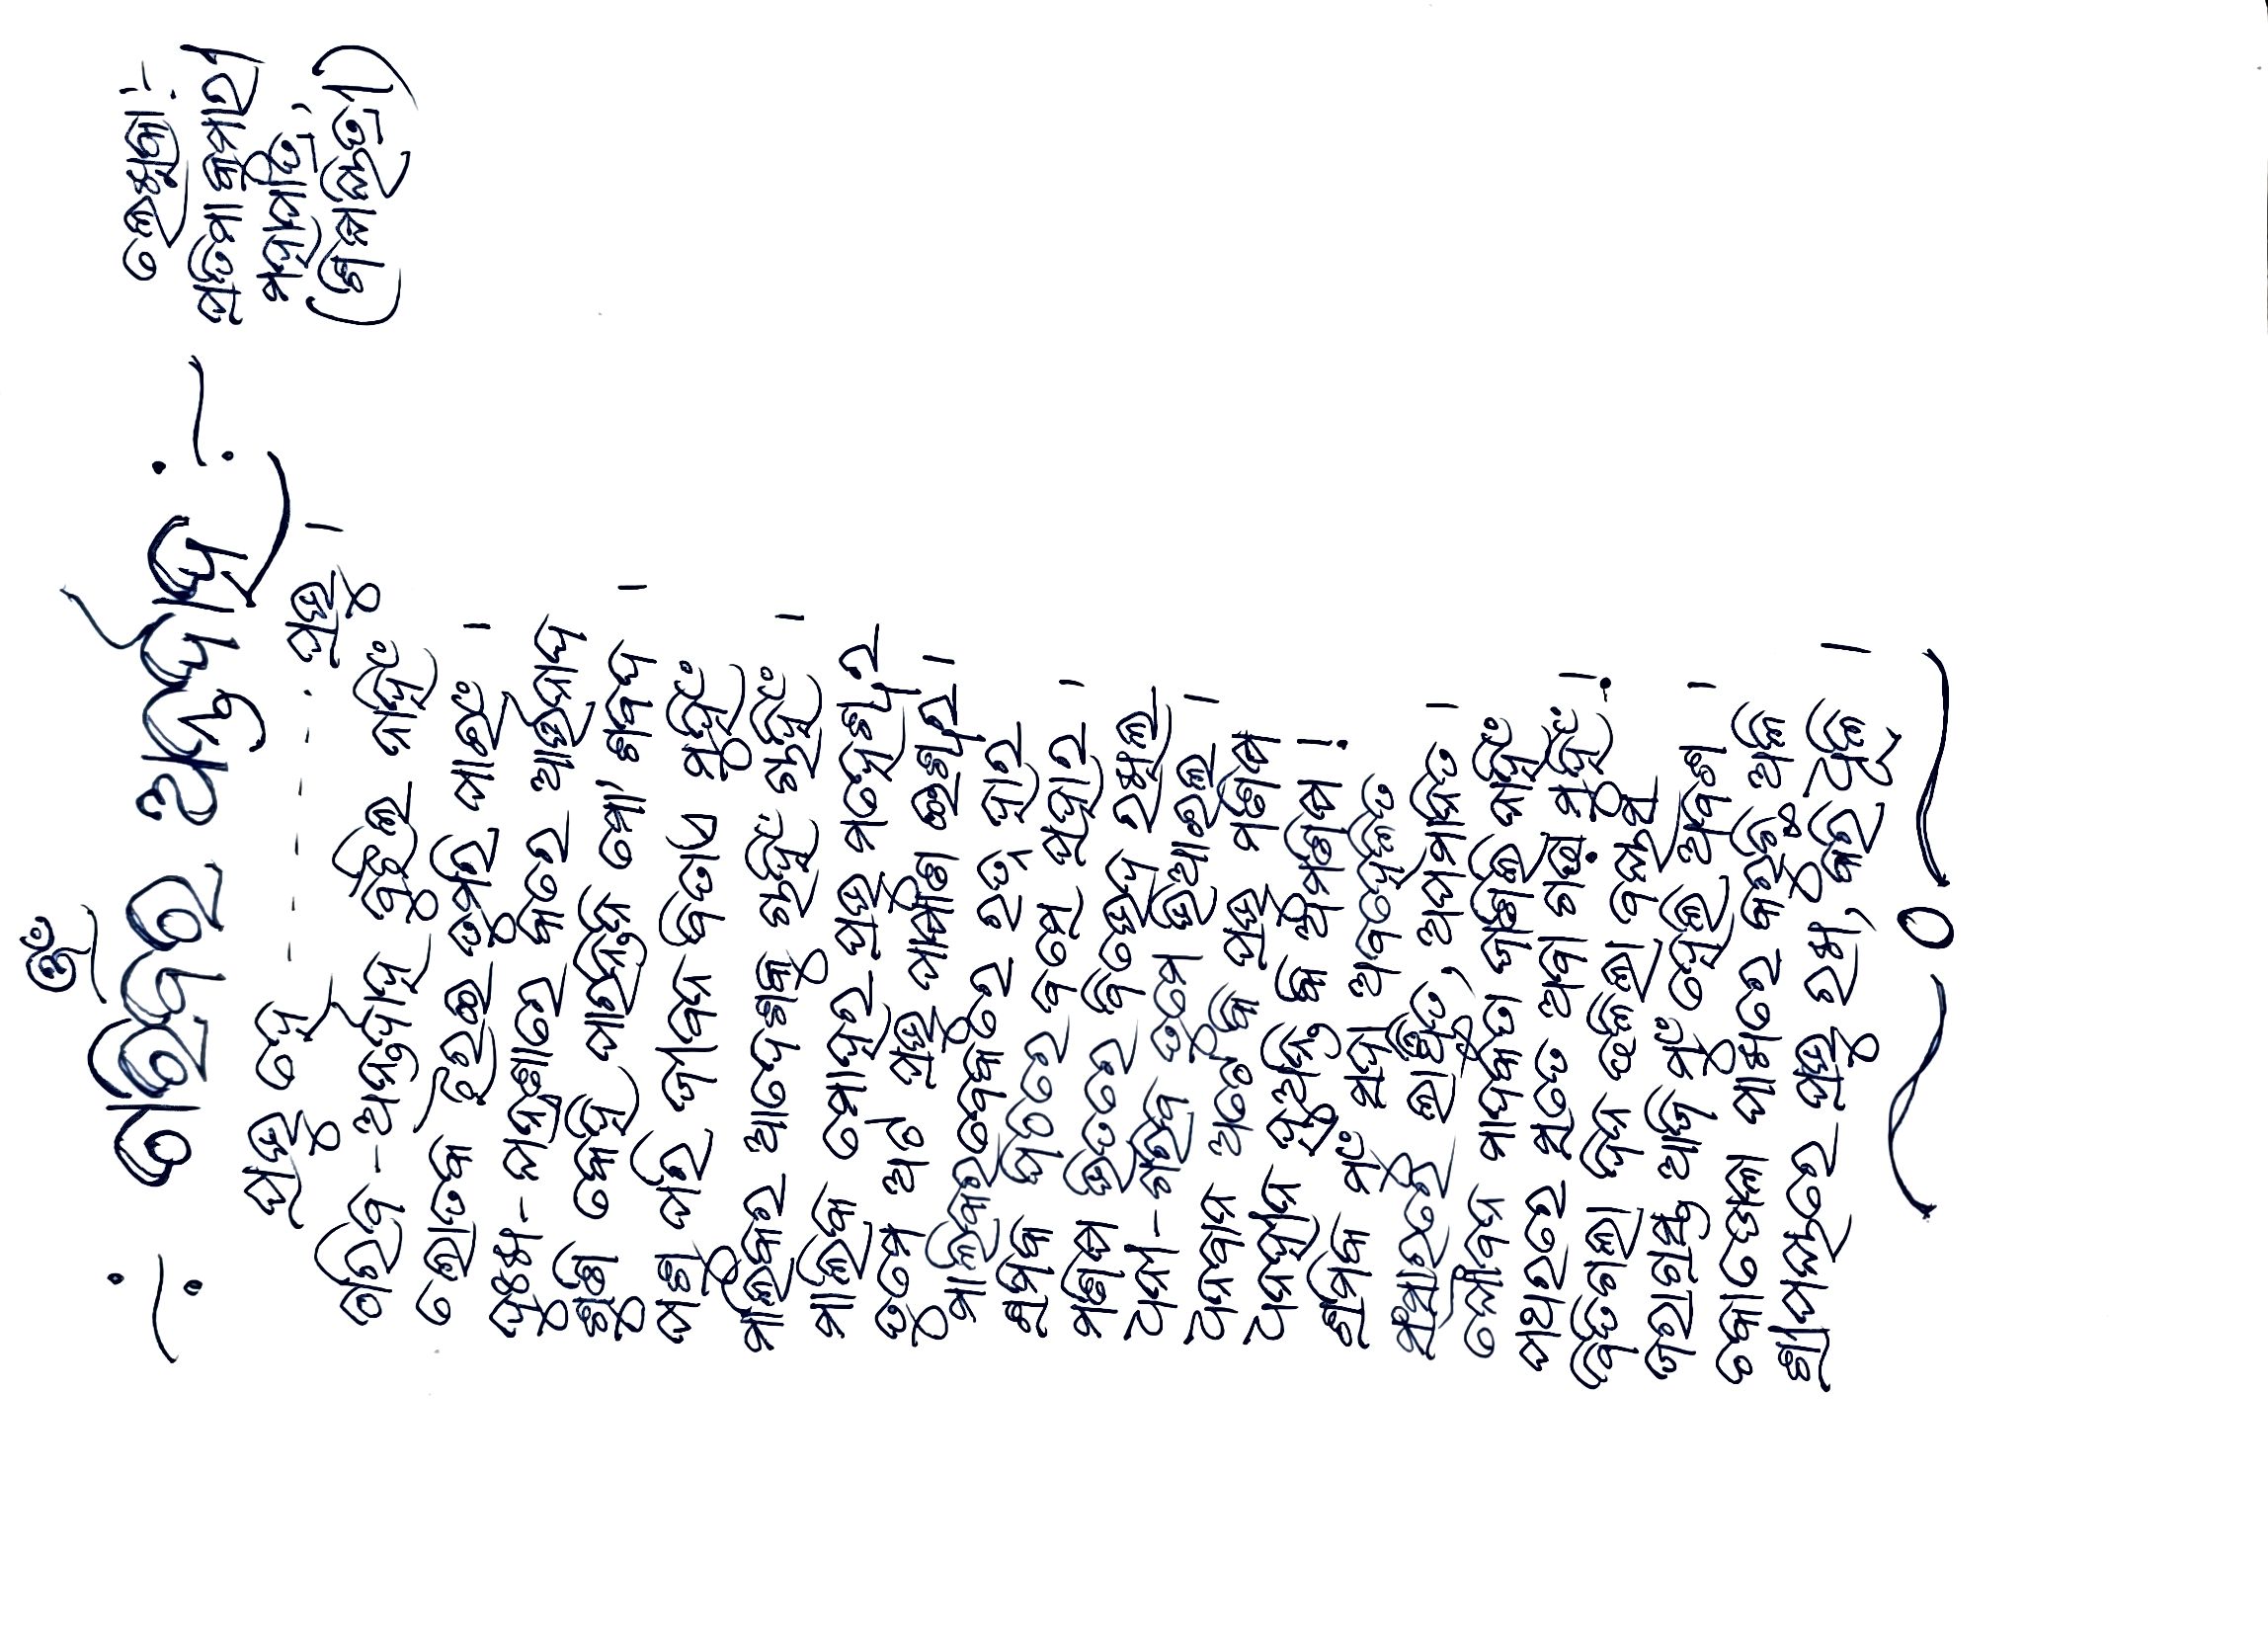 ଓଁ
-: ଗରିବର ଅନ୍ତର୍ଦାହ :-
ଲେଖିକା:-
ପ୍ରତିମା କୁମାରୀ
ମହାପାତ୍ର,
(ଶିକ୍ଷୟିତ୍ରୀ)
ପ୍ରଭୁ ହେ - - - - - - - ପ୍ରଭୁ ।
ଗରିବ - ଅନ୍ତର୍ଦାହ ବୁଝିଲ ନାହିଁ
ଲୋତକ ଝରଇ ତୁମରି ପାଇଁ ।
ଦୁଃଖ - ଯନ୍ତ୍ରଣାରେ କରେ ଆର୍ତ୍ତନାଦ
ଶୁଣି କେହି ପାରନ୍ତିନି ମୋ' ଶବଦ ।
ପଶୁ ପରି ଜୀବନ ବିତାଏ ମୁହିଁ
ମାଲିକର ଆଦେଶକୁ ଚାହିଁ ଚାହିଁ ।
ମାଲିକ ମୋହର ପ୍ରଭୁ ମହେଶ୍ୱର
ତୁମେ ଅଟ ପ୍ରଭୁ ପାଷାଣ ଇଶ୍ୱର ।
ମାଲିକର ବେକରେ ରତ୍ନ ହାର
ଶ୍ରମିକ ପିଠିରେ ବସେ ପ୍ରହାର ।
ମଣିଷ ଭିତରେ ବିଭେଦ ରଖିଲ
ଧନୀ - ଗରିବ ତୁମେ ଭିଆଇଲ ।
ଧନବାନ ଅଟେ କି ପ୍ରଭୁ ମଣିଷ
ଧନହୀନ ହୁଅନ୍ତି କି ଅମଣିଷ !
ଶ୍ରମିକ ମୁଁ ସଦା ଅବହେଳିତ
ସଂସାରରେ ଲାଞ୍ଛିତ, ଅପମାନିତ ।
ଯୌବନ ମାଦକତା ଜାଣିଲି ନାହିଁ
ପଥରରେ ସତେ ଅବା ଗଢ଼ା ମୁହିଁ !
ବିତିଗଲା ଦିନ ଢଳିଲା ବୟସ
ଜରାଗ୍ରସ୍ତ ଆଜି ମୁଁ ହେଲି ଅବଶ ।
ଚକାଡୋଳା ପାଖରେ କରୁଚ୍ଛି ଅଳି
ଶ୍ରୀପୟରେ ପ୍ରଭୁ ରଖ, କରି ଧୂଳି ।
~ 0 ~